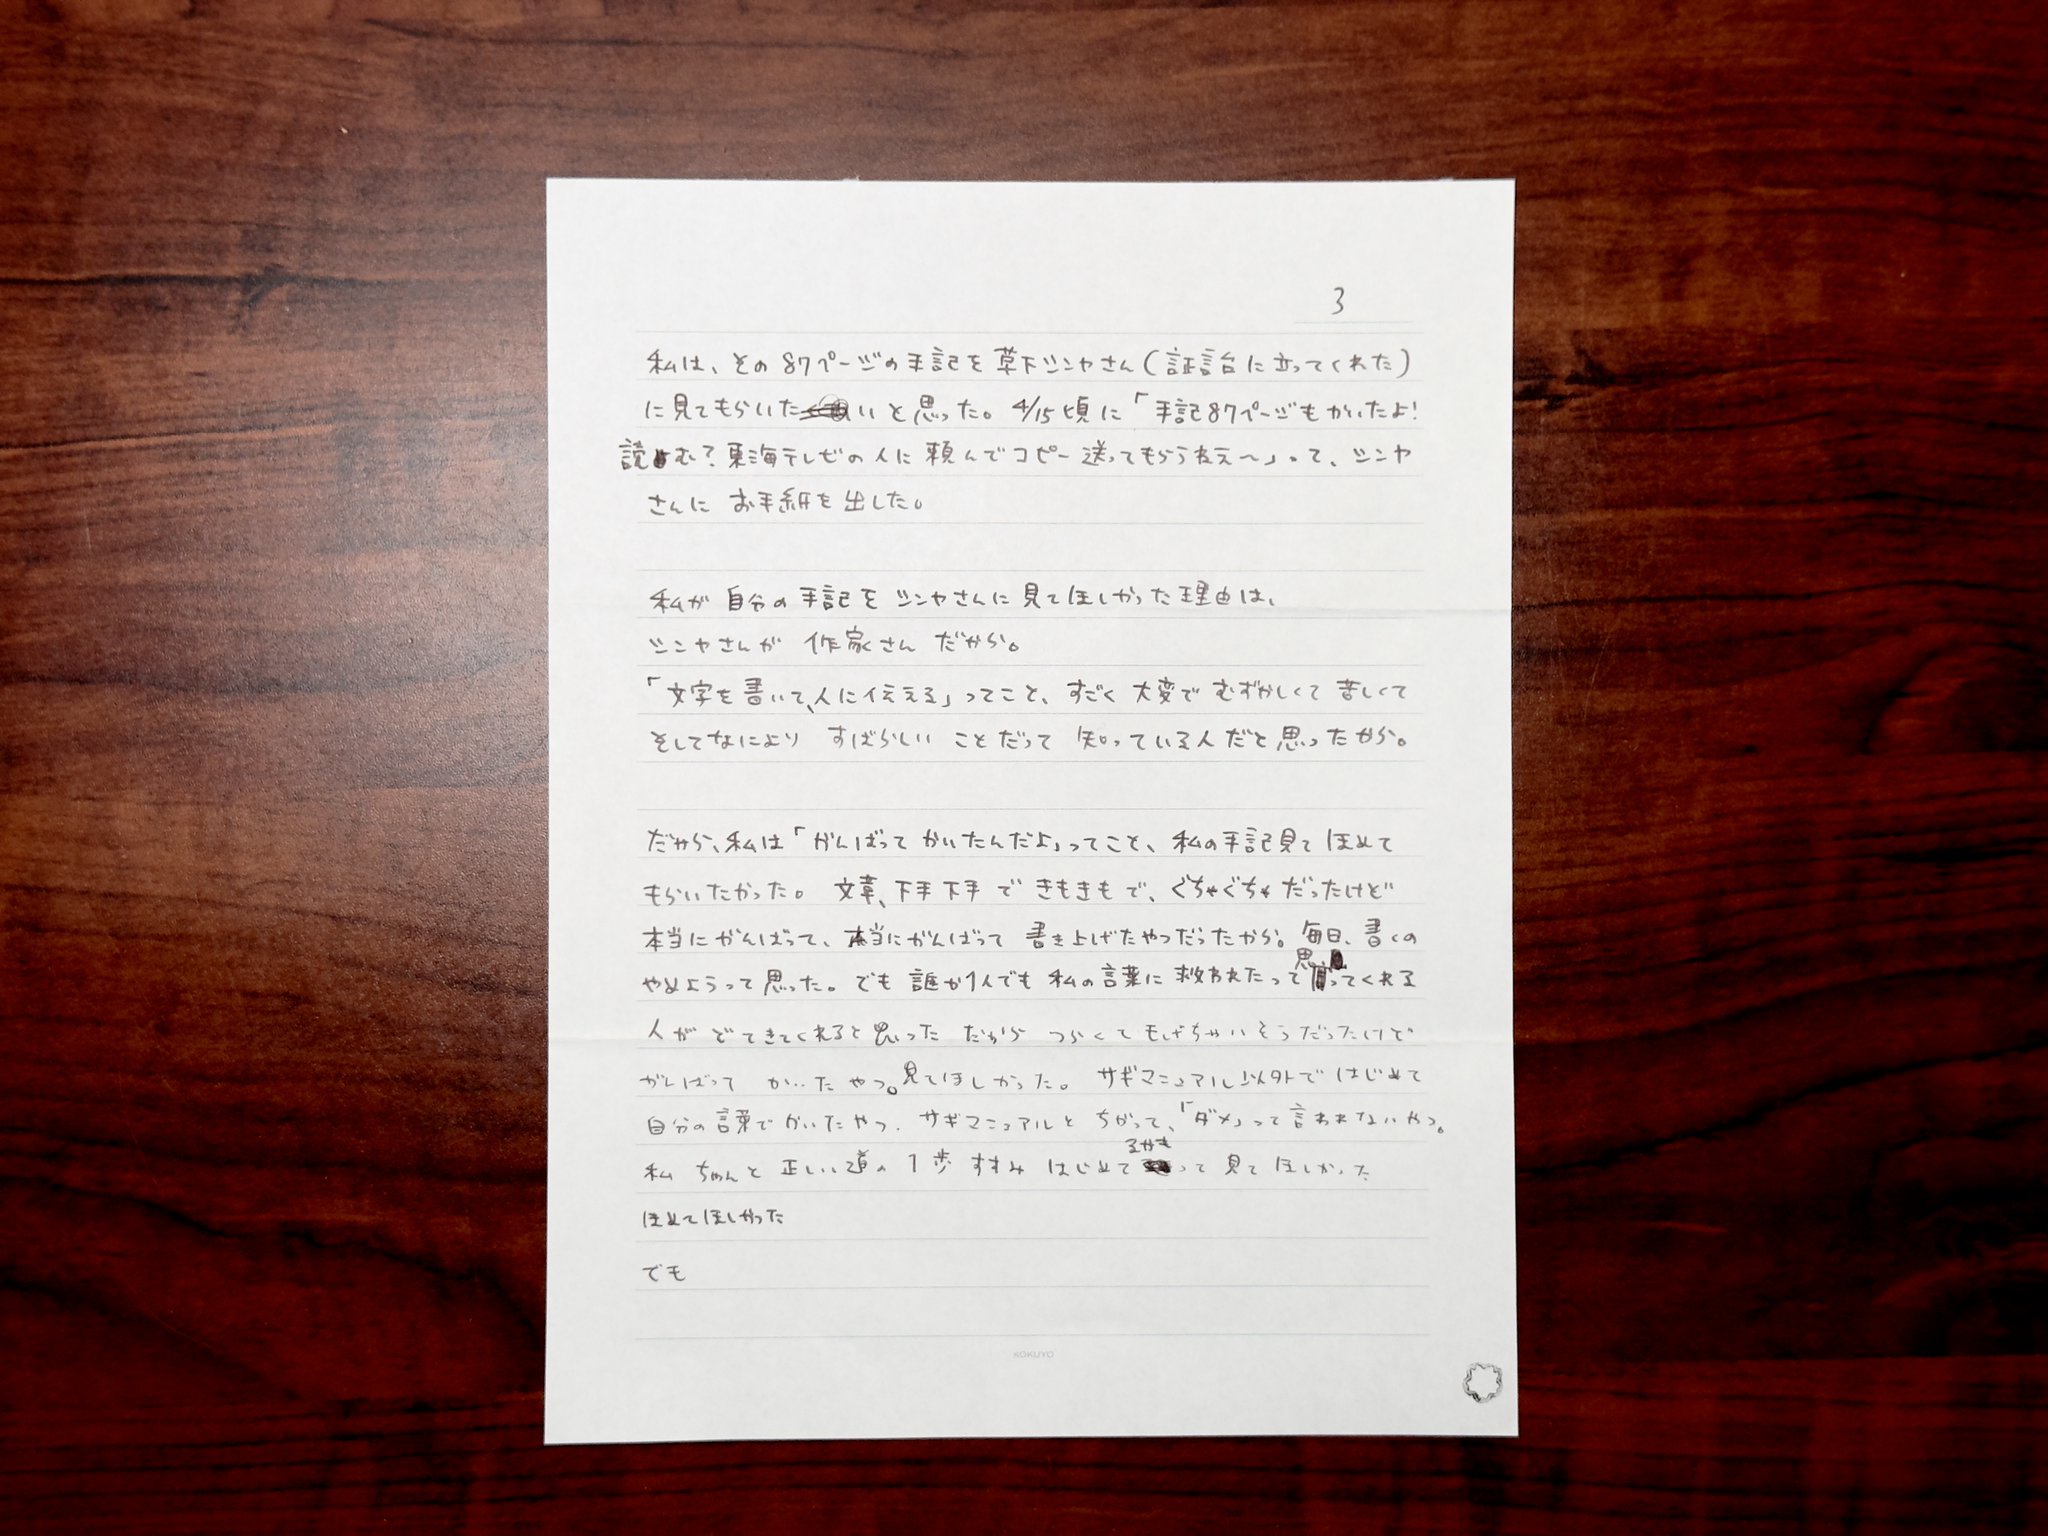 3
私は、その87ページの手記を草下シンヤさん(証言台に立ってくれた)
に見てもらいたいと思った。4/15頃に「手記87ページもかいたよ!
読む?東海テレビの人に頼んでコピー送ってもらうねえ〜」って、シンヤ
さんにお手紙を出した。
私が自分の手記をシンヤさんに見てほしかった理由は、
シンヤさんが作家さんだから。
「文字を書いて、人に伝える」ってこと、すごく大変でむずかしくて苦しくて
そしてなによりすばらしいことだって知っている人だと思ったから。
だから、私は「がんばってかいたんだよ」ってこと、私の手記見てほめて
もらいたかった。文章、下手下手できもきもで、ぐちゃぐちゃだったけど
本当にがんばって、本当にがんばって書き上げたやつだったから。毎日、書くの
やめようって思った。でも誰か1人でも私の言葉に救われたって思ってくれる
人がでてきてくれると思っただからつらくてもげちゃいそうだったけど
がんばってかいたやつ。見てほしかった。サギマニュアル以外ではじめて
自分の言葉でかいたやつ。サギマニュアルとちがって、「ダメ」って言われないやつ。
私ちゃんと正しい道の1歩すすみはじめてるかもって見てほしかった
ほめてほしかった
でも
KOKUYO